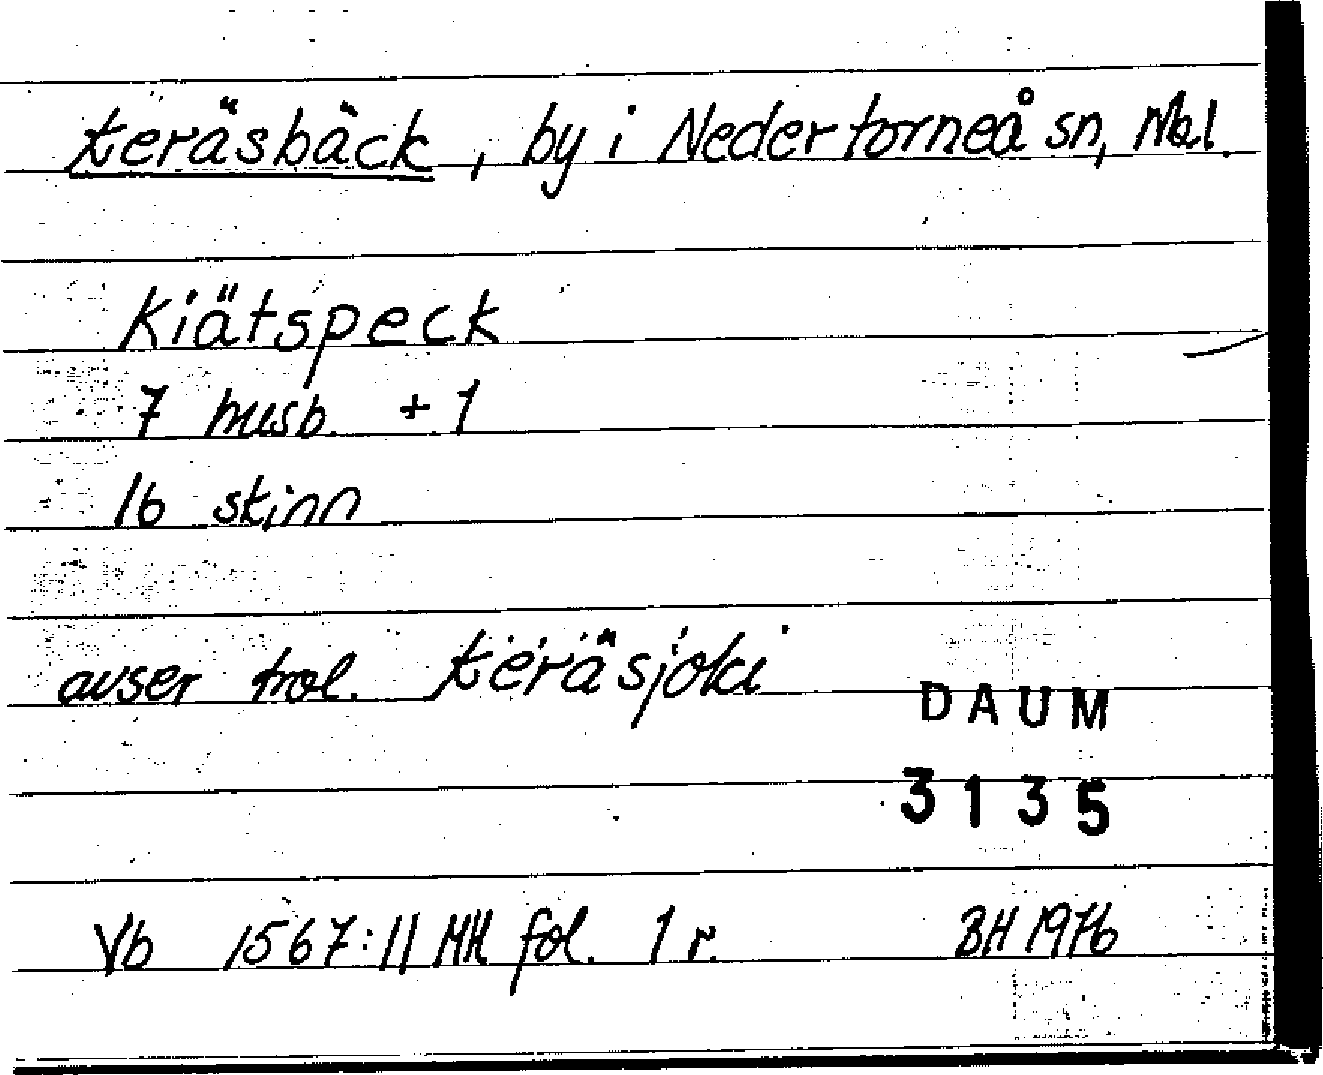 Keräsbäck, by i Nedertorneå sn, Nbl.
Kiätspeck
7 husb. + 1
16 skinn
avser trol. Keräsjoki
DAUM
3135
Vb 1567:11 MH fol. 1 r. BH 1976